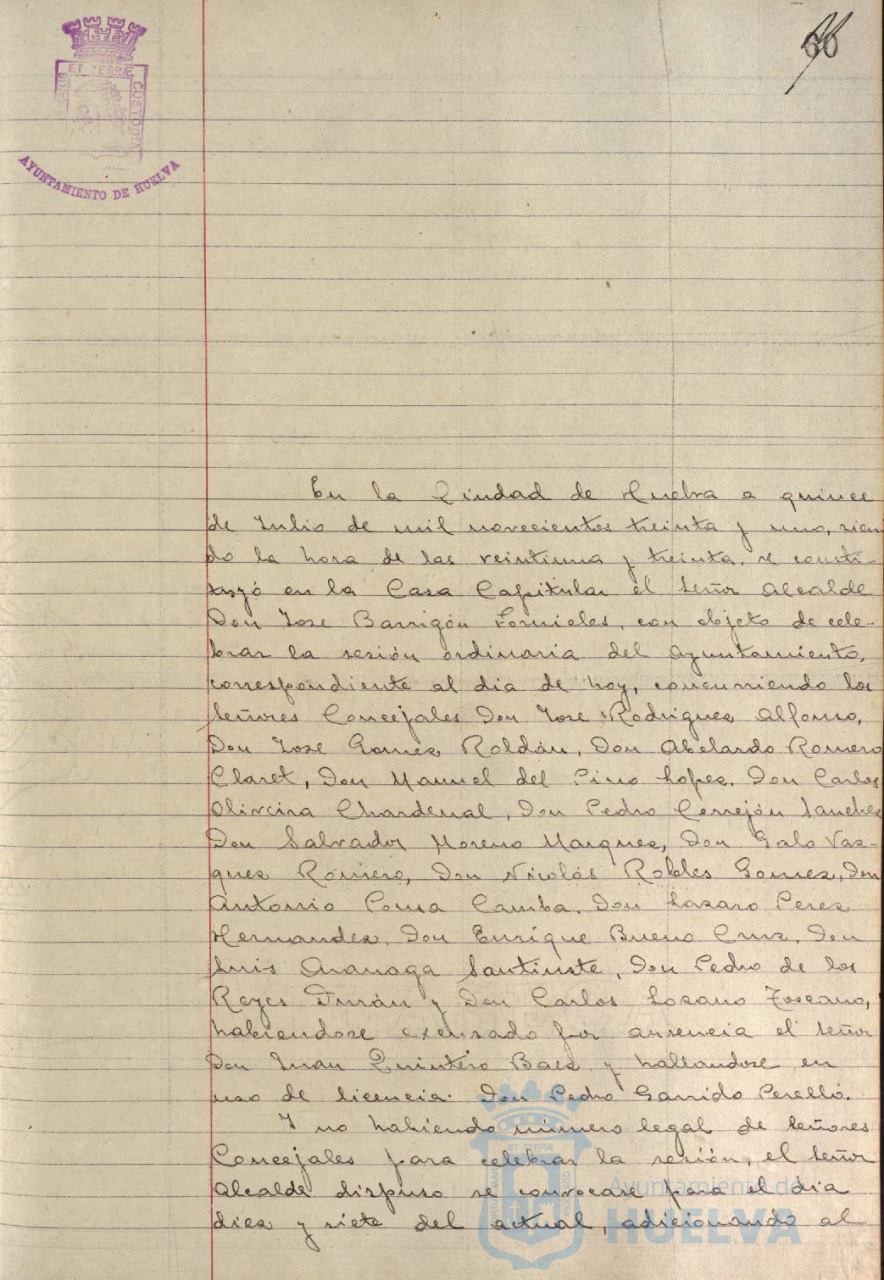 66
ET TERRÆ
CUSTODIA
AYUNTAMIENTO DE HUELVA
En la Ciudad de Huelva a quince
de Julio de mil novecientos treinta y uno, sien-
do la hora de las veintiuna y treinta, se consti-
tuyó en la Casa Capitular el Señor Alcalde
Don Jose Barrigón Fornieles, con objeto de cele-
brar la sesión ordinaria del Ayuntamiento,
correspondiente al dia de hoy, concurriendo los
Señores Concejales Don Jose Rodriguez Alfonso,
Don Jose Gomez Roldán, Don Abelardo Romero
Claret, Don Manuel del Pino Lopez, Don Carlos
Oliveira Chardenal, Don Pedro Cerrejón Sanchez
Don Salvador Moreno Marquez, Don Galo Vaz-
quez Romero, Don Nicolás Robles Gomez, Don
Antonio Poma Camba, Don Lazaro Perez
Hernandez, Don Enrique Bueno Cruz, Don
Luis Aranaga Santiuste, Don Pedro de los
Reyes Durán y Don Carlos Lozano Toscano,
habiendose excusado por ausencia el Señor
Don Juan Quintero Baez y hallandose en
uso de licencia Don Pedro Garrido Perelló.
Y no habiendo número legal de Señores
Concejales para celebrar la sesión, el Señor
Alcalde dispuso se convocase para el dia
diez y siete del actual, adicionando al
ET TERRÆ
Ayuntamiento de
HUELVA